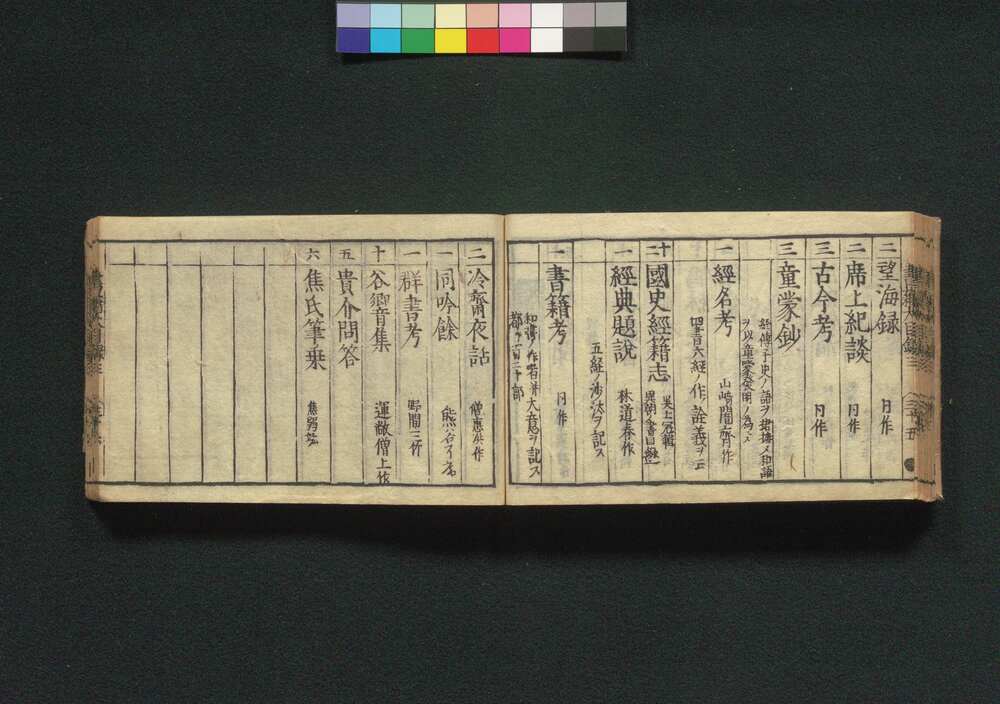 二 望海録 同作
二 席上紀談 同作
三 古今考 同作
三 童蒙鈔
經傳子史ノ語ヲ
ヲ以童蒙發用ノ為ニス
一 經名考 山﨑闇齊作
四書六經ノ作詮義ヲ云
十二 國史經籍志 異朝ノ書目
一 經典題說 林道春作
五經ノ沙汰ヲ記ス
一 書籍考 同作
和漢ノ作者并大意ヲ記ス
都テ百二十部
二 冷齋夜話 僧惠洪作
一 同吟餘 熊谷了菴
一 群書考 野間三竹
十 谷響音集 運敞僧上作
五 貴介問答
六 焦氏筆乗